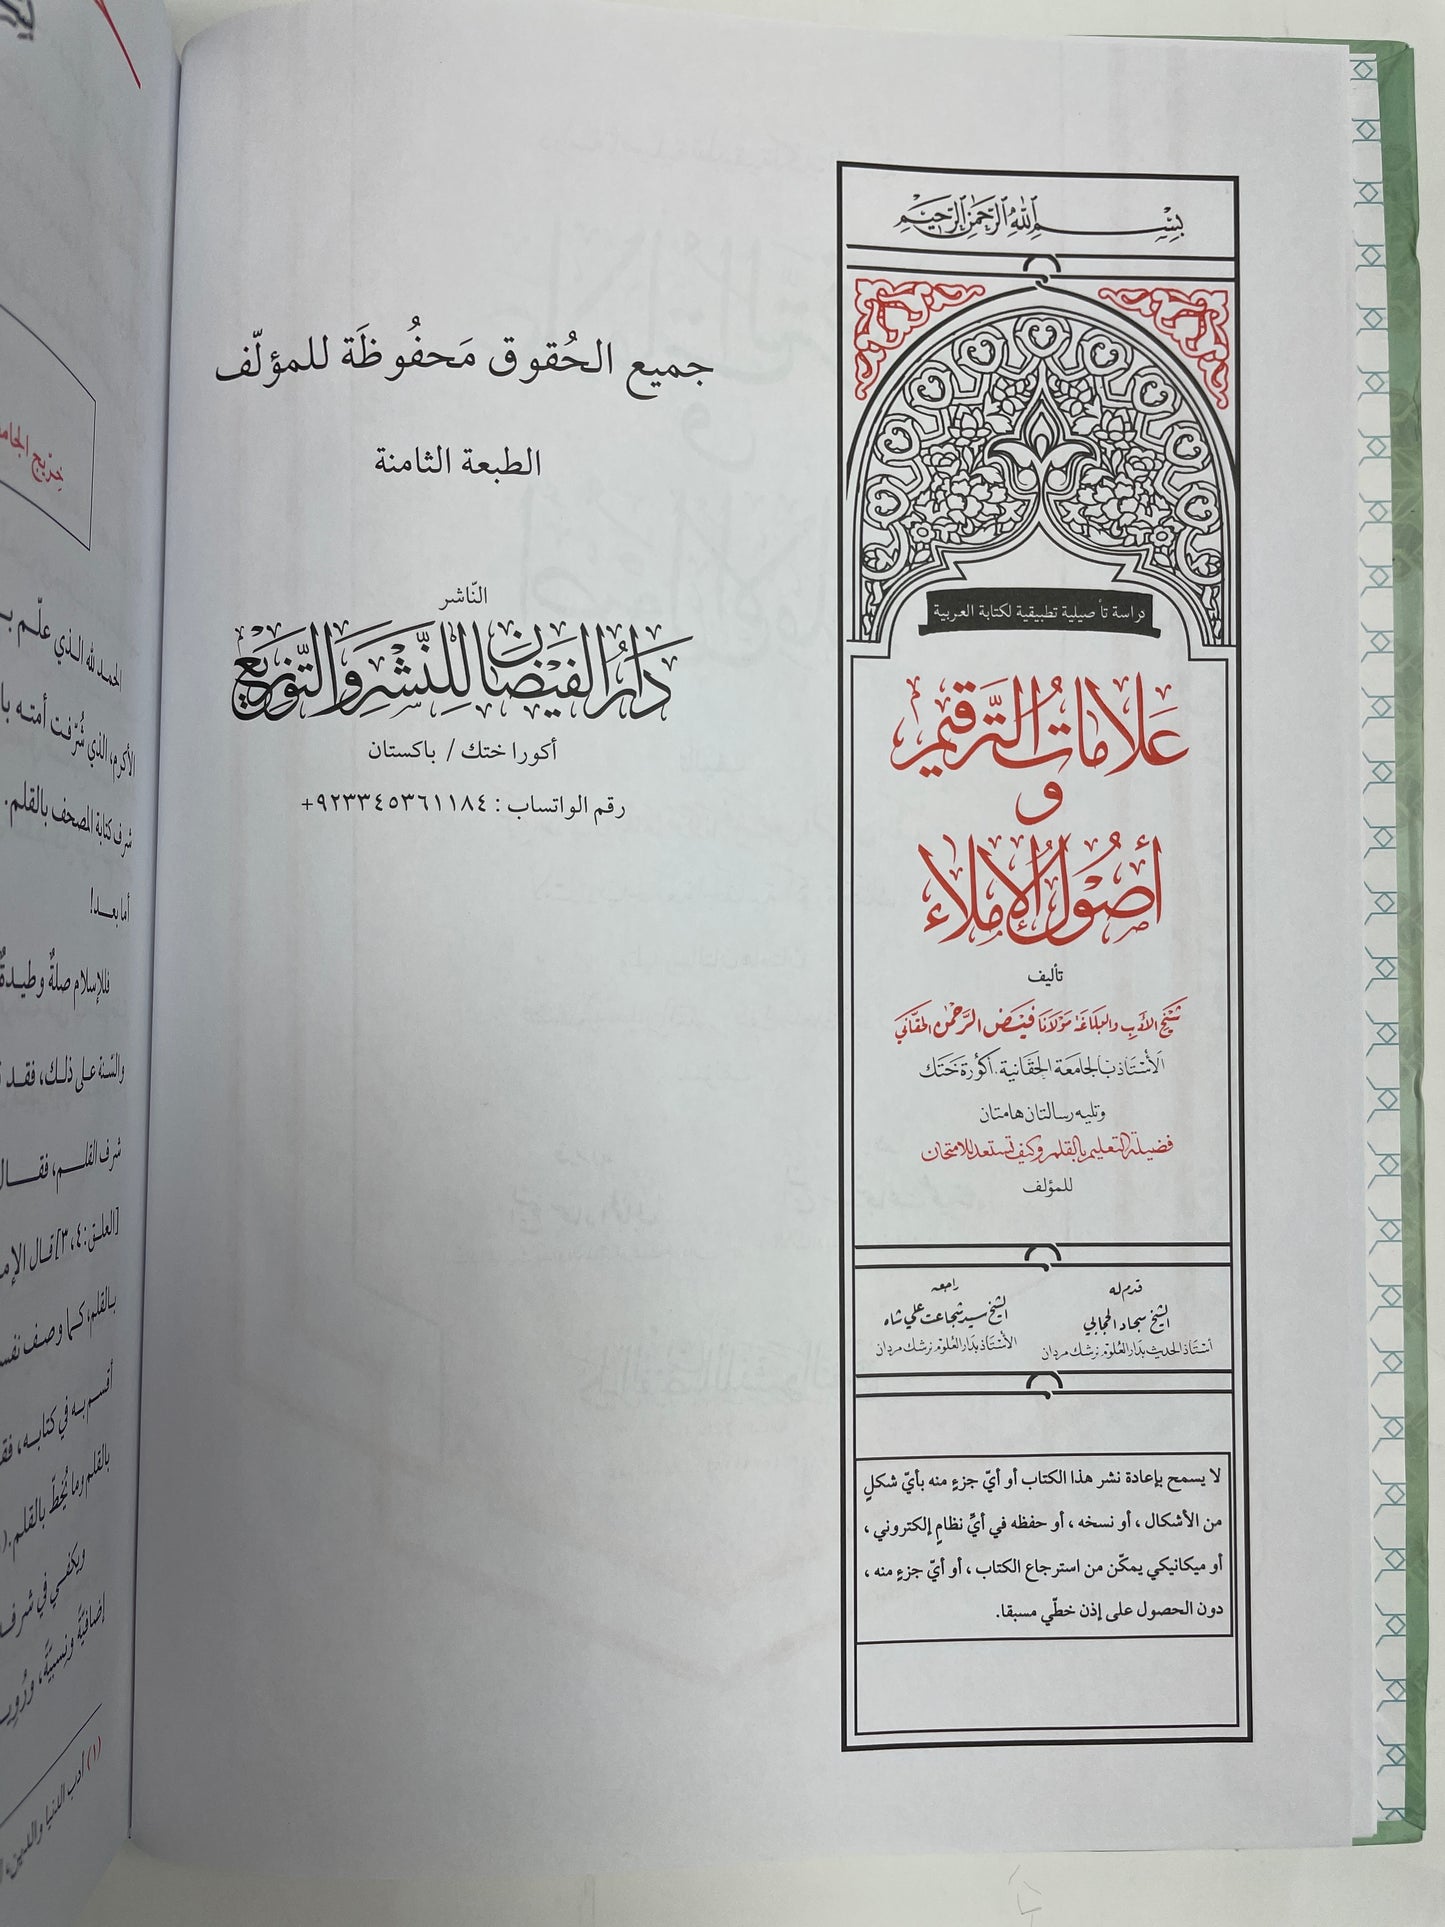 بِسْمِ اللهِ الرَّحْمٰنِ الرَّحِيْمِ
دراسة تأصيلية تطبيقية لكتابة العربية
عَلَامَاتُ التَّرقِيْمِ
و
أُصُوْلُ الإِمْلَاءِ
تأليف
شَيْخ الأدَبِ والبلاغة مَوْلَانَا فَيْضُ الرَّحْمٰن الحقّاني
الأُسْتَاذ بالجَامعَة الحَقّانية. أكُورَة خَتَك
وتليه رسالتان هامتان
فضيلة التعليم بالقلم وكيف تستعد للامتحان
للمؤلف
قدم له
الشيخ سجاد الحجابي
أستاذ الحديث بدار العلوم نرشك مردان
راجعه
الشيخ سيد شجاعت علي شاه
الأستاذ بدار العلوم نرشك مردان
لا يسمح بإعادة نشر هذا الكتاب أو أيّ جزءٍ منه بأيّ شكلٍ
من الأشكال ، أو نسخه ، أو حفظه في أيِّ نظامٍ إلكتروني ،
أو ميكانيكي يمكّن من استرجاع الكتاب ، أو أيّ جزءٍ منه ،
دون الحصول على إذن خطّي مسبقا.
جميع الحُقوق مَحفُوظَة للمؤلّف
الطبعة الثامنة
النّاشر
دَارُ الفَيْضَان لِلنَّشْرِ وَالتَّوْزِيْعِ
أكورا ختك / باكستان
رقم الواتساب : ٩٢٣٣٤٥٣٦١١٨٤+
الحمد لله الذي علّم
الأكرم، الذي شُرّفت أمته
شرف كتابة المصحف بالقلم.
أما بعد!
فللإسلام صلةٌ وطيدةٌ
والسّنة على ذلك، فقد
شرف القلم، فقال
[العلق:٤،٣] قال
بالقلم، كما وصف
أقسم به في كتابه،
بالقلم وما يُخطّ بالقلم.
ويكفي في
إضافيّة ونسبيّة،
(١) أدب الدنيا والدين،